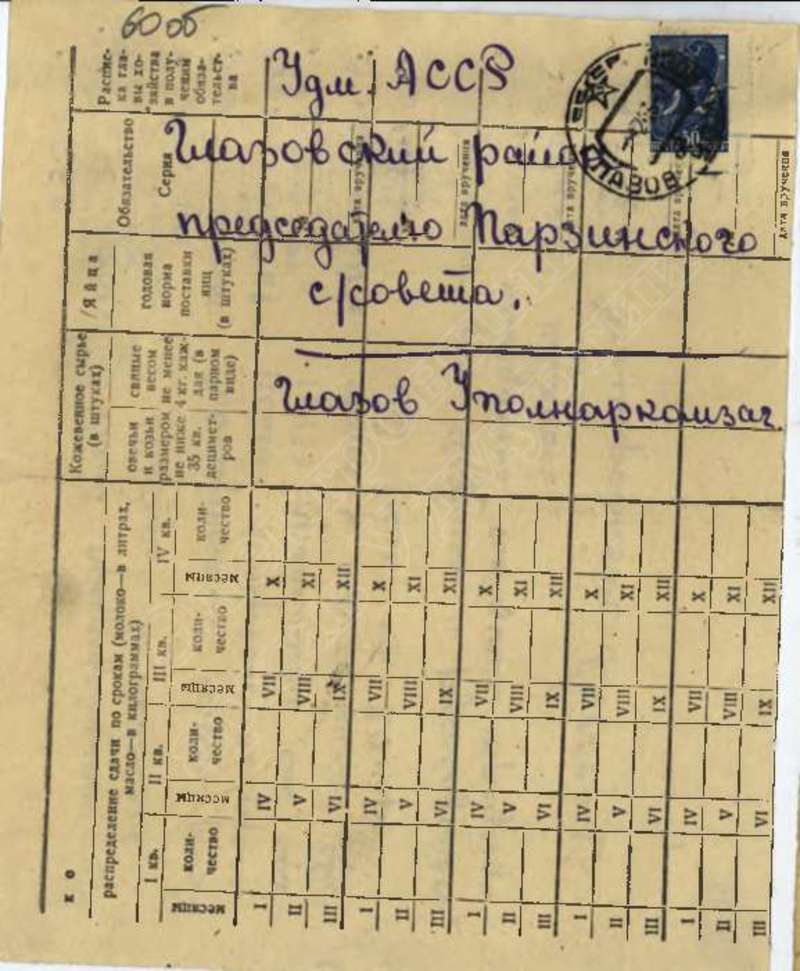 60 об
Удм. АССР
Глазовский район
председателю Парзинского
с/совета.
Глазов Уполнаркомзаг
СССР
ГЛАЗОВ
30
Расписка
ка гла-
вы хо-
зяйства
в полу-
чении
обяза-
тельст-
ва
Обязательство
Серия
дата вручения
дата вручения
дата вручения
дата вручения
дата вручения
Яйца
годовая
норма
поставки
яиц
(в штуках)
Кожевенное сырье
(в штуках)
свиные
весом
не менее
4 кг. каж-
дая (в
парном
виде)
овечьи
и козьи
размером
не ниже
35 кв.
дециметр-
ров
ко
распределение сдачи по срокам (молоко—в литрах,
масло—в килограммах)
I кв.
II кв.
III кв.
IV кв.
месяцы
коли-
чество
месяцы
коли-
чество
месяцы
коли-
чество
месяцы
коли-
чество
I
IV
VII
X
II
V
VIII
XI
III
VI
IX
XII
I
IV
VII
X
II
V
VIII
XI
III
VI
IX
XII
I
IV
VII
X
II
V
VIII
XI
III
VI
IX
XII
I
IV
VII
X
II
V
VIII
XI
III
VI
IX
XII
I
IV
VII
X
II
V
VIII
XI
III
VI
IX
XII